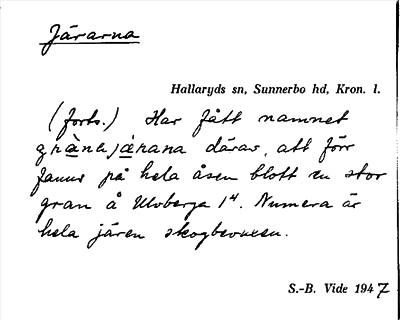 Järarna
Hallaryds sn, Sunnerbo hd, Kron. l.
(forts.) Har fått namnet
därav, att förr
fanns på hela åsen blott en stor
gran å Ulvberga 1⁴. Numera är
hela jären skogbevuxen.
S.-B. Vide 1947